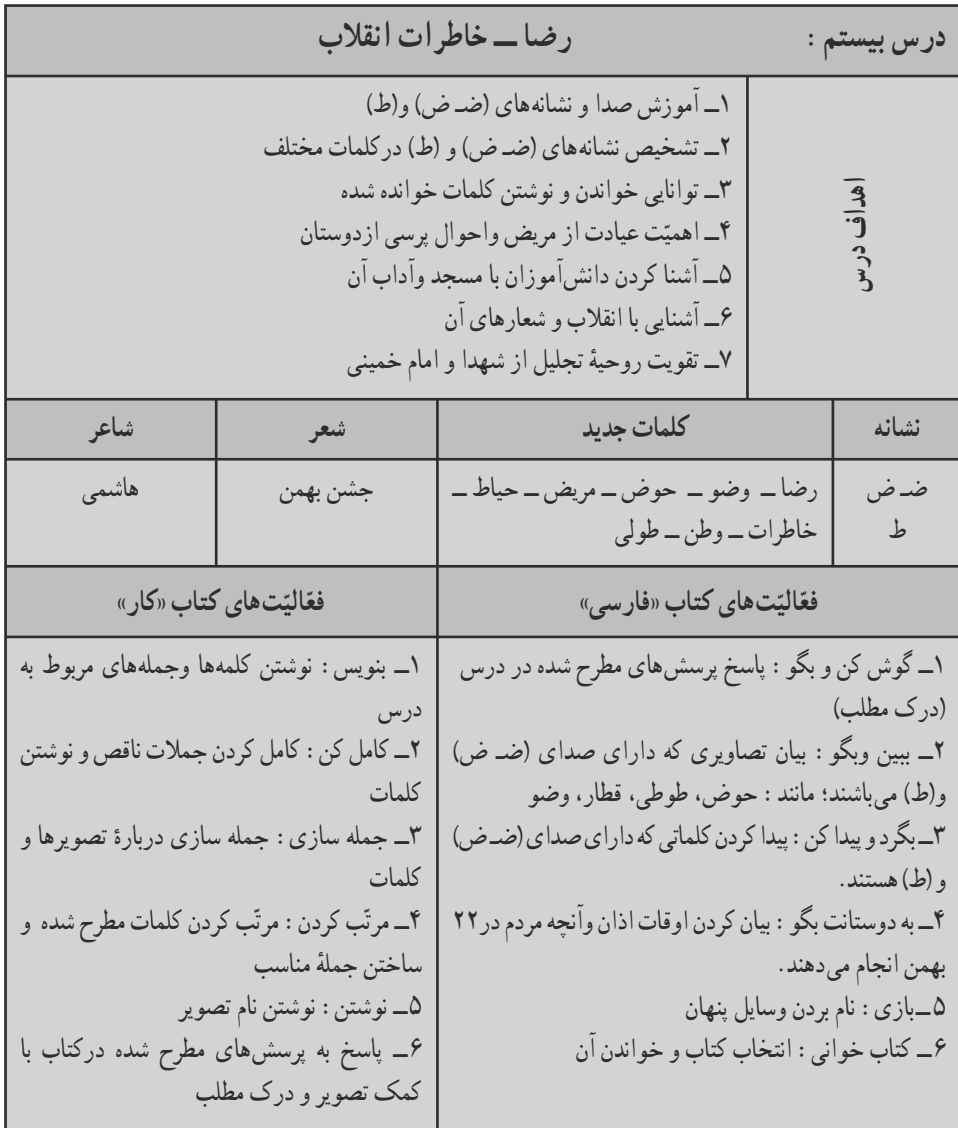 درس بیستم : رضا ــ خاطرات انقلاب
اهداف درس
١ــ آموزش صدا و نشانه‌های (ضـ ض) و(ط)
٢ــ تشخیص نشانه‌های (ضـ ض) و (ط) درکلمات مختلف
٣ــ توانایی خواندن و نوشتن کلمات خوانده شده
۴ــ اهمیّت عیادت از مریض واحوال پرسی ازدوستان
۵ــ آشنا کردن دانش‌آموزان با مسجد وآداب آن
۶ــ آشنایی با انقلاب و شعارهای آن
٧ــ تقویت روحیهٔ تجلیل از شهدا و امام خمینی
نشانه کلمات جدید شعر شاعر
ضـ ض رضا ــ وضو ــ حوض ــ مریض ــ حیاط ــ جشن بهمن هاشمی
ط خاطرات ــ وطن ــ طولی
فعّالیّت‌های کتاب «فارسی»
١ــ گوش کن و بگو : پاسخ پرسش‌های مطرح شده در درس
(درک مطلب)
٢ــ ببین وبگو : بیان تصاویری که دارای صدای (ضـ ض)
و(ط) می‌باشند؛ مانند : حوض، طوطی، قطار، وضو
٣ــ بگرد و پیدا کن : پیدا کردن کلماتی که دارای صدای (ضـ ض)
و (ط) هستند.
۴ــ به دوستانت بگو : بیان کردن اوقات اذان وآنچه مردم در٢٢
بهمن انجام می‌دهند.
۵ــ بازی : نام بردن وسایل پنهان
۶ــ کتاب خوانی : انتخاب کتاب و خواندن آن
فعّالیّت‌های کتاب «کار»
١ــ بنویس : نوشتن کلمه‌ها وجمله‌های مربوط به
درس
٢ــ کامل کن : کامل کردن جملات ناقص و نوشتن
کلمات
٣ــ جمله سازی : جمله سازی دربارهٔ تصویرها و
کلمات
۴ــ مرتّب کردن : مرتّب کردن کلمات مطرح شده و
ساختن جملهٔ مناسب
۵ــ نوشتن : نوشتن نام تصویر
۶ــ پاسخ به پرسش‌های مطرح شده درکتاب با
کمک تصویر و درک مطلب